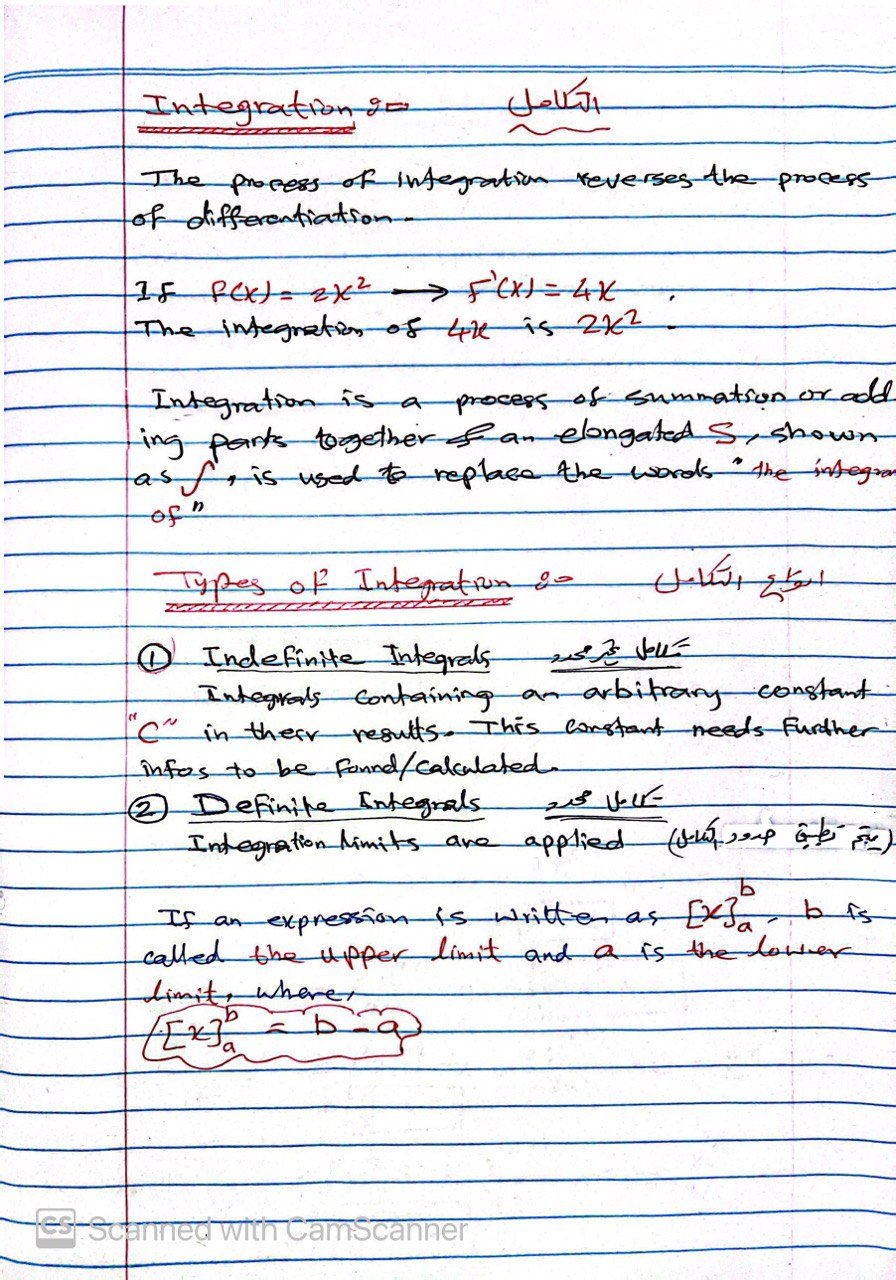 Integration :- التكامل
The process of integration reverses the process
of differentiation.
If f(x) = 2x² → f'(x) = 4x
The integration of 4x is 2x².
Integration is a process of summation or add
ing parts together & an elongated S, shown
as ∫, is used to replace the words "the integra
of"
Types of Integration :- انواع التكامل
① Indefinite Integrals تكامل غير محدد
Integrals containing an arbitrary constant
"C" in their results. This constant needs further
infos to be found/calculated.
② Definite Integrals تكامل محدد
Integration limits are applied (يتم تطبيق حدود التكامل)
If an expression is written as [x]ₐᵇ, b is
called the upper limit and a is the lower
limit, where,
[x]ₐᵇ = b - a
CS Scanned with CamScanner